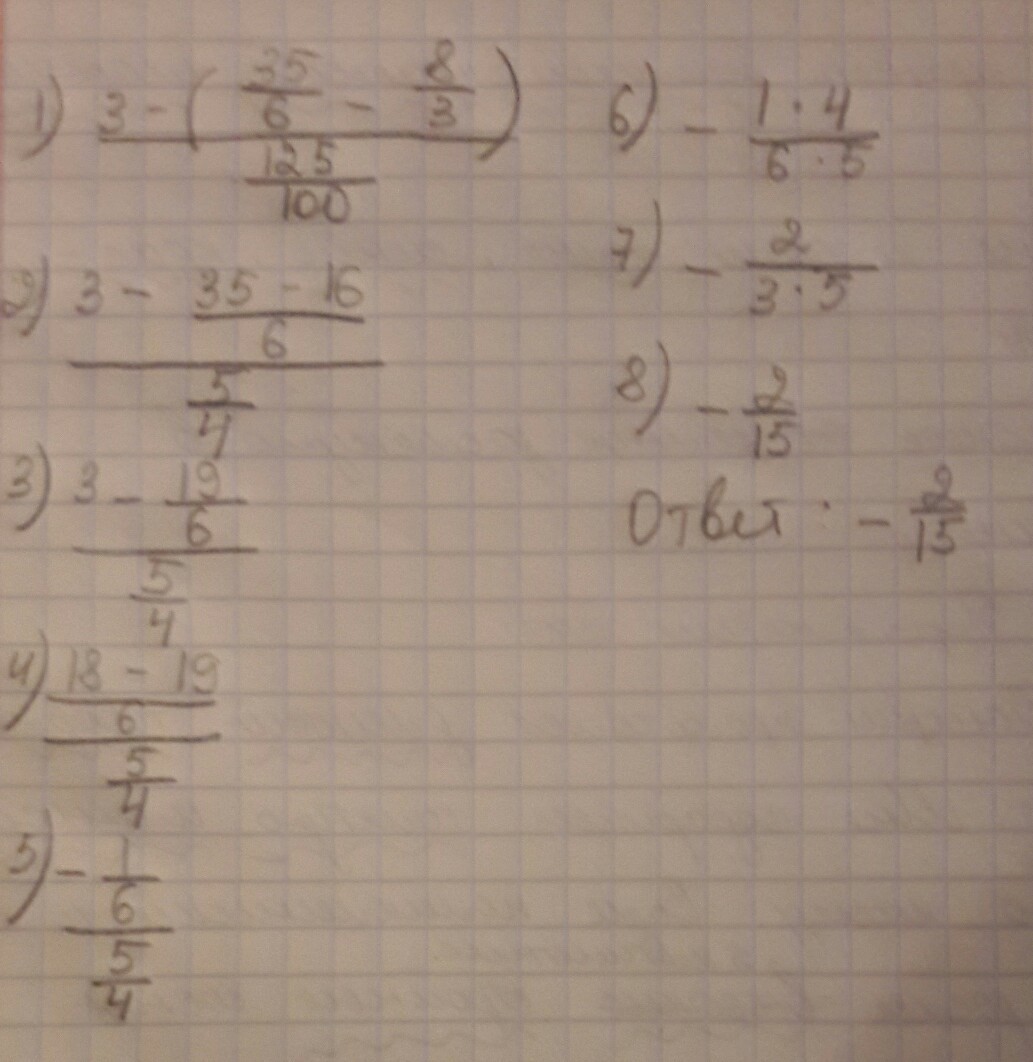 1) (3 - (35/6 - 8/3)) / (125/100)
2) (3 - (35 - 16)/6) / (5/4)
3) (3 - 19/6) / (5/4)
4) ((18 - 19)/6) / (5/4)
5) (- 1/6) / (5/4)
6) - (1 · 4)/(6 · 5)
7) - 2/(3 · 5)
8) - 2/15
Ответ: - 2/15